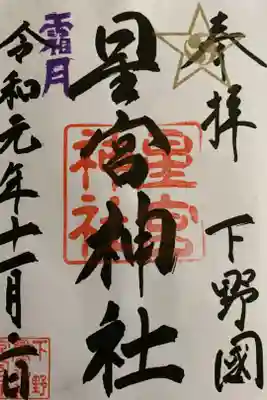 奉拝 下野國
星宮神社
星宮神社
霜月
令和元年十一月二日
下野